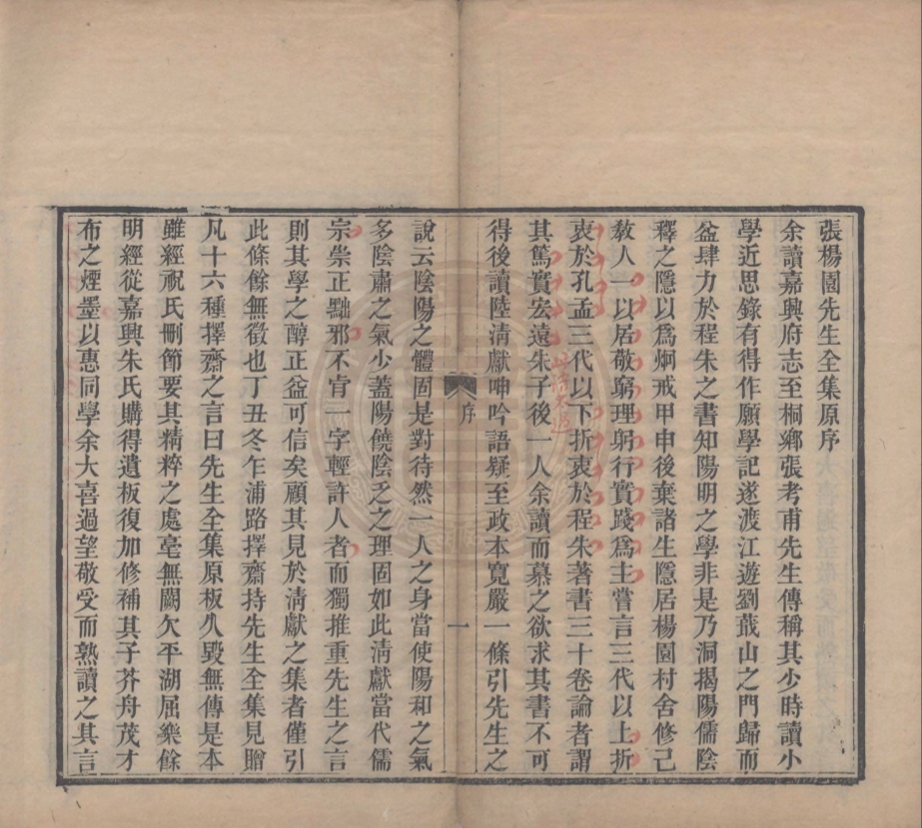 張楊園先生全集原序
余讀嘉興府志至桐鄉張考甫先生傳稱其少時讀小
學近思錄有得作願學記遂渡江遊劉蕺山之門歸而
益肆力於程朱之書知陽明之學非是乃洞揭陽儒陰
釋之隱以爲炯戒甲申後棄諸生隱居楊園村舍修己
敎人一以居敬窮理躬行實踐爲主嘗言三代以上折
衷於孔孟三代以下折衷於程朱著書三十卷論者謂
其篤實宏遠朱子後一人余讀而慕之欲求其書不可
得後讀陸清獻呻吟語疑至政本寬嚴一條引先生之
序
一
說云陰陽之體固是對待然一人之身當使陽和之氣
多陰肅之氣少蓋陽饒陰乏之理固如此清獻當代儒
宗崇正黜邪不肯一字輕許人者而獨推重先生之言
則其學之醇正益可信矣顧其見於清獻之集者僅引
此條餘無徵也丁丑冬乍浦路擇齋持先生全集見贈
凡十六種擇齋之言曰先生全集原板久毀無傳是本
雖經祝氏刪節要其精粹之處毫無闕欠平湖屈樂餘
明經從嘉興朱氏購得遺板復加修補其子芥舟茂才
布之煙墨以惠同學余大喜過望敬受而熟讀之其言